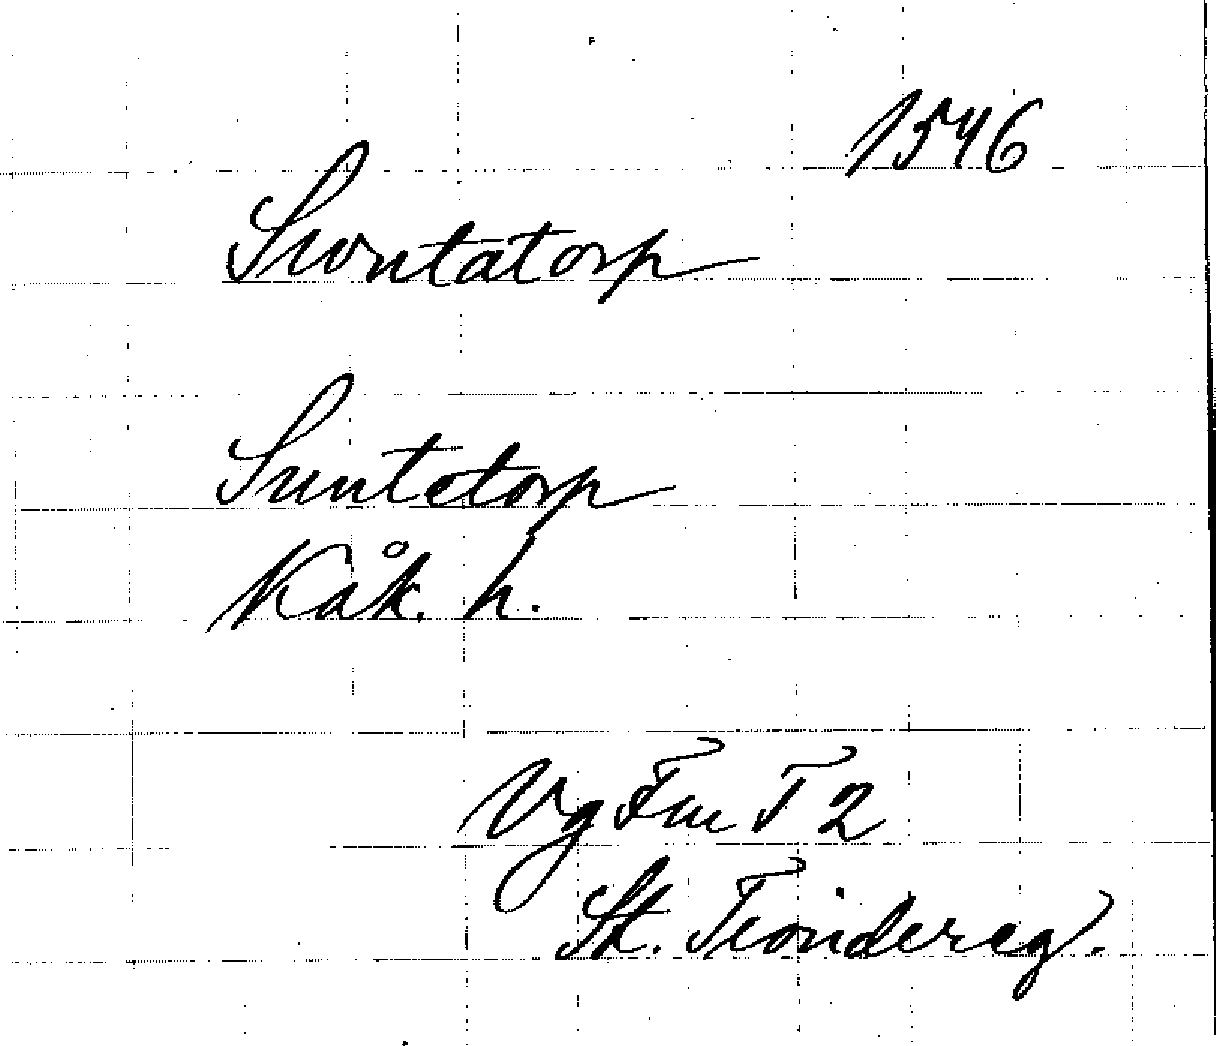 1546
Swntatorp
Suntetorp
Kåk. h.
Vg Fm T 2
St. Tiondereg.